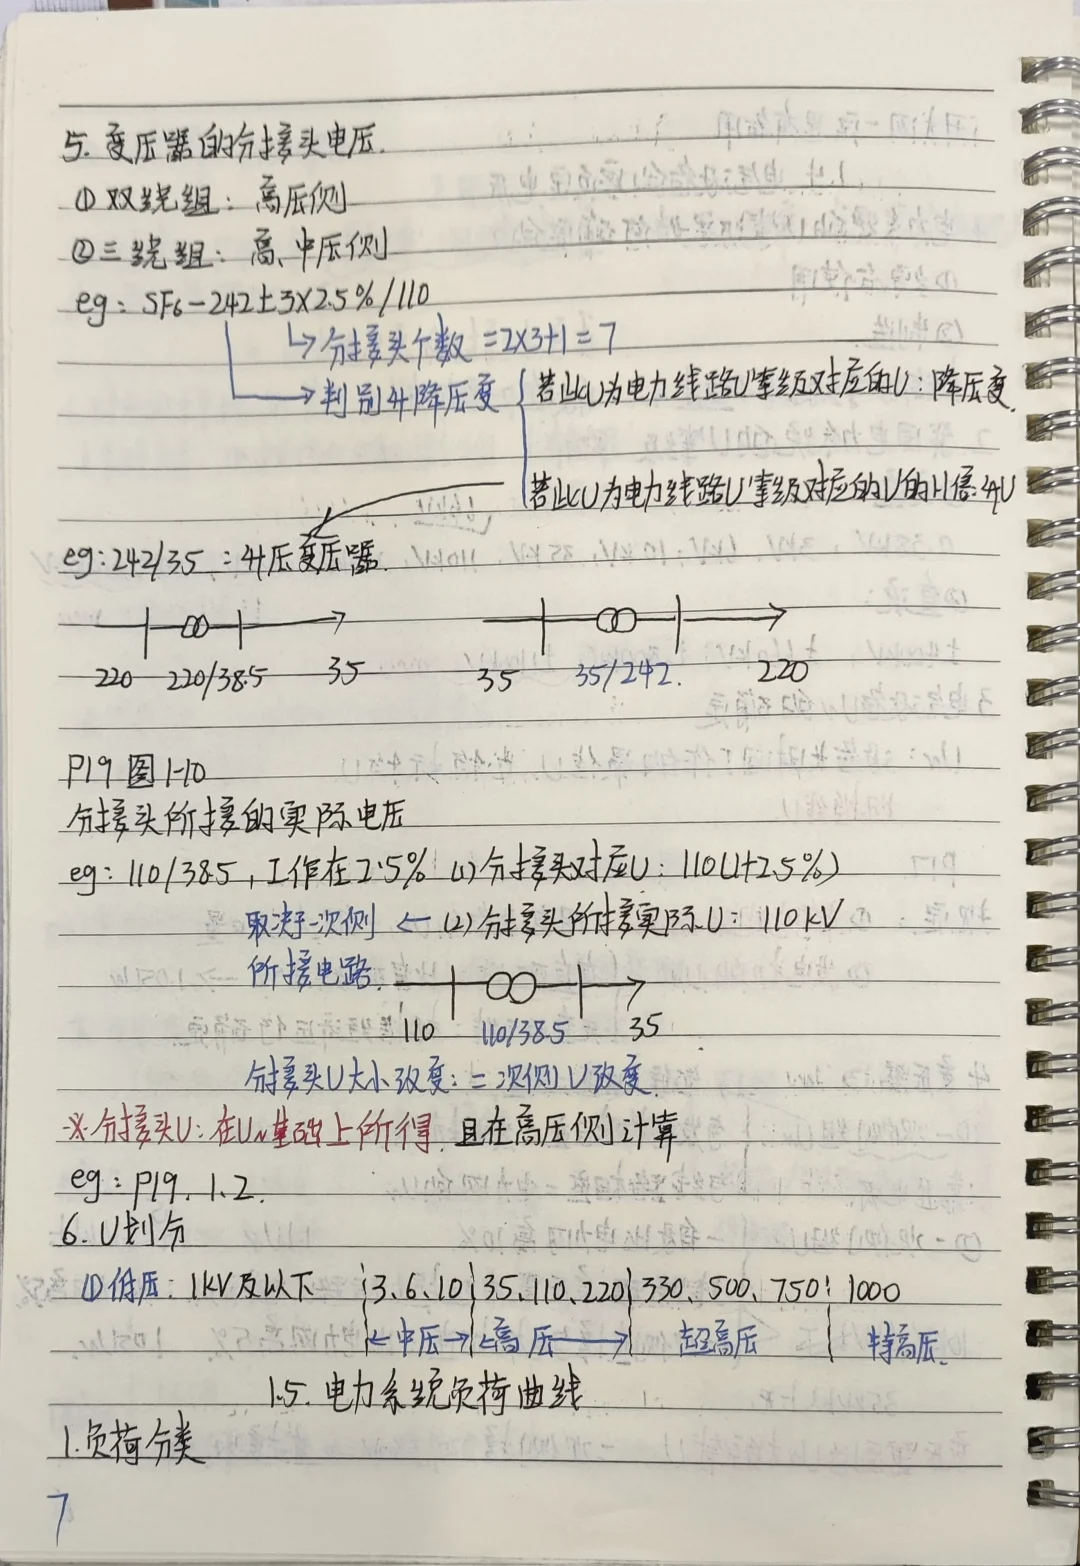 5. 变压器的分接头电压.
① 双绕组: 高压侧
② 三绕组: 高、中压侧
eg: SF6-242±3×2.5%/110
↳ 分接头个数 =2×3+1=7
→ 判别升降压变 { 若此U为电力线路U等级对应的U: 降压变.
若此U为电力线路U等级对应的U的1.1倍:升U
eg:242/35 :升压变压器.
220 220/38.5 35 35 35/242. 220
P19 图1-10
分接头所接的实际电压
eg: 110/38.5, 工作在2.5% (1)分接头对应U: 110(1+2.5%)
取决于一次侧 ← (2)分接头所接实际U: 110kV
所接电路.
110 110/38.5 35
分接头U大小改变: 二次侧U改变.
※ 分接头U: 在UN基础上所得, 且在高压侧计算
eg: P19. 1.2.
6. U划分
① 低压: 1kV及以下 3、6、10 35、110、220 330、500、750 1000
中压 高压 超高压 特高压.
1.5. 电力系统负荷曲线
1.负荷分类
7